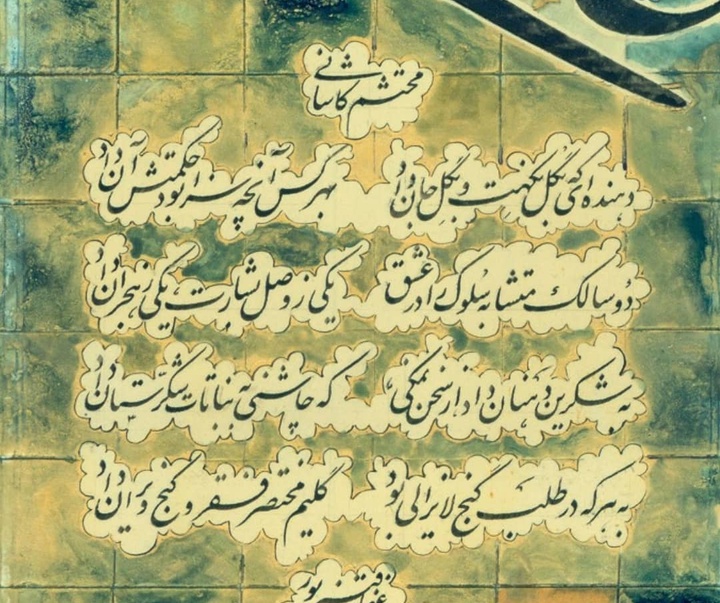 محتشم کاشانی
دهنده ای که بگل نکهت و بگل جان داد بهر کس آنچه سزا بود حکمتش آن داد
دو سالک متشابه سلوک را در عشق یکی ز وصل بشارت یکی ز هجران داد
به شکرین دهنان داد از سخن نمکی که چاشنی به نباتات شکرستان داد
به هر که در طلب گنج لایزالی بود گلیم مختصر فقر و کنج ویران داد